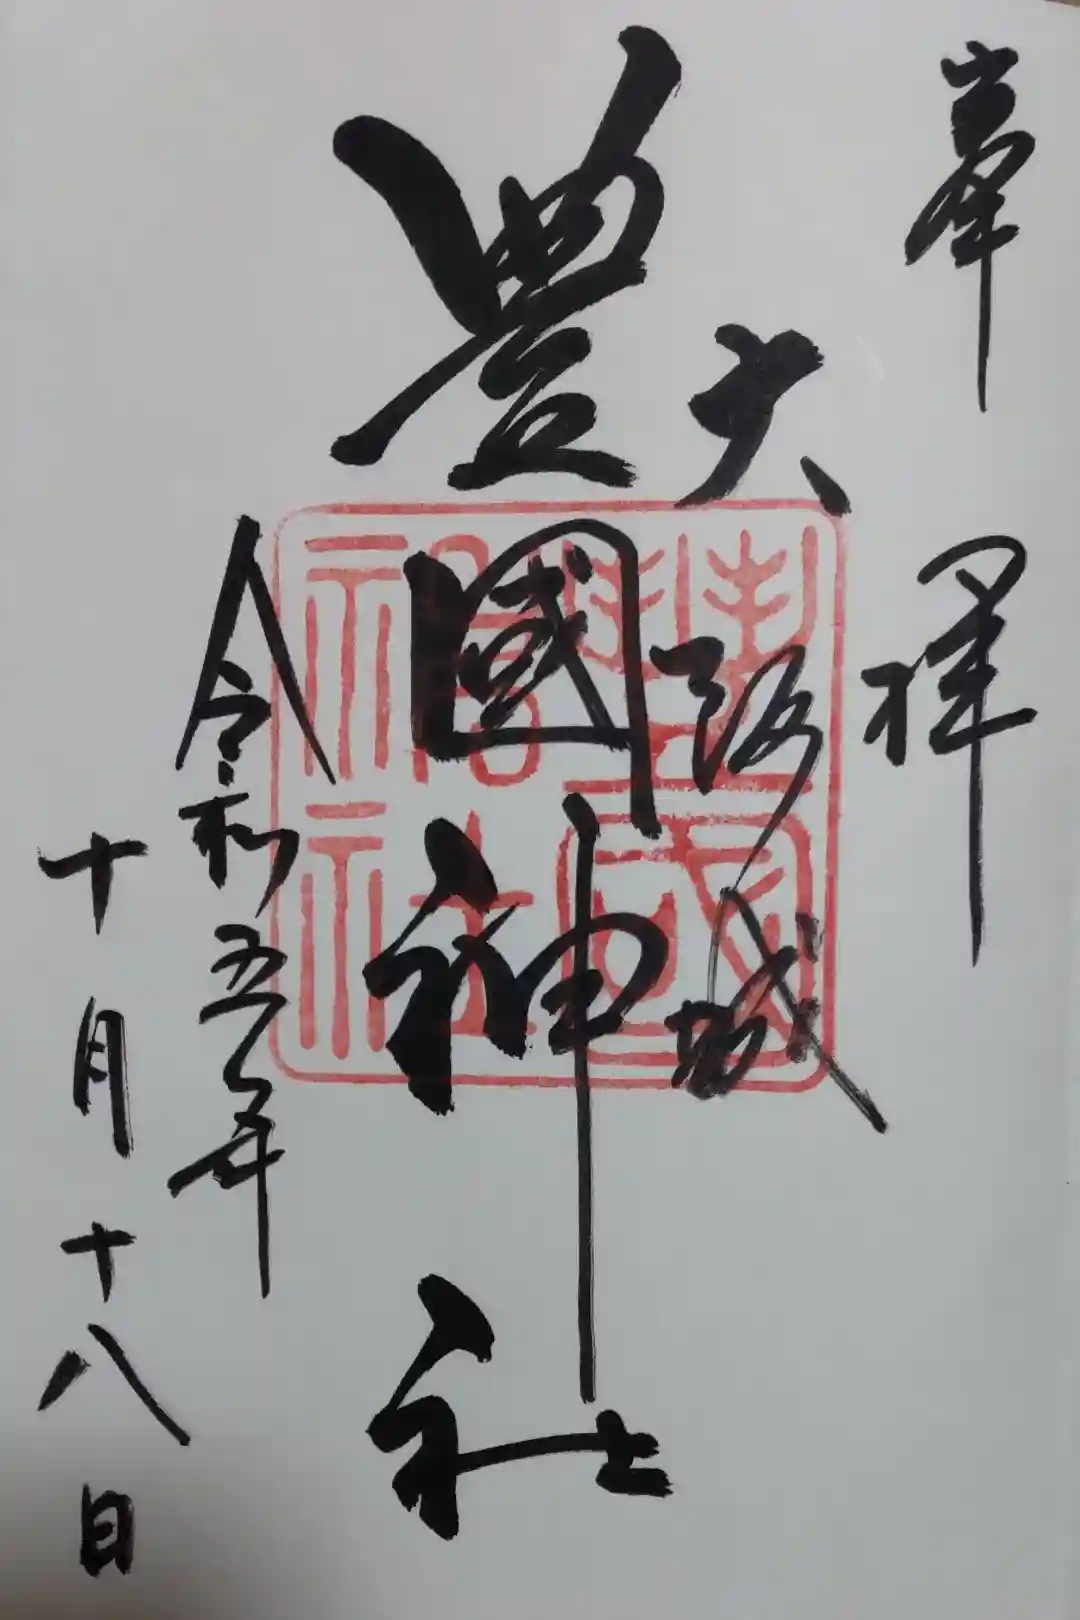 奉拝
大阪城
豊國神社
令和五年
十月十八日
豊國
神社